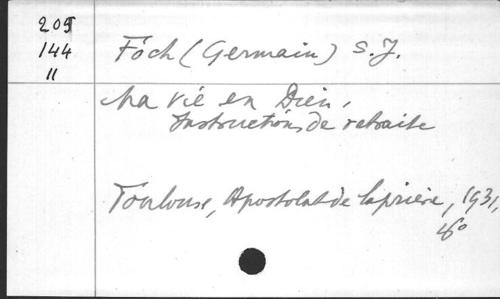 205
144
11
Foch (Germain) S.J.
Ma vie en Dieu,
Instructions de retraite
Toulouse, Apostolat de la prière, 1931,